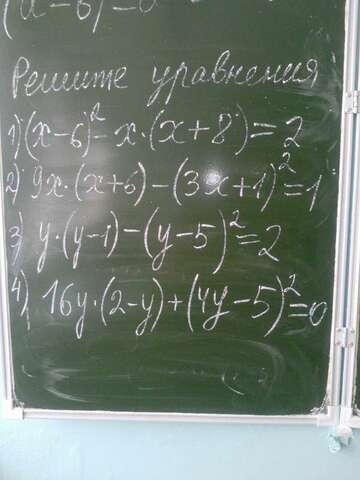 (a-b)=a
Решите уравнения
1) (x-6)²-x·(x+8)=2
2) 9x·(x+6)-(3x+1)²=1
3) y·(y-1)-(y-5)²=2
4) 16y·(2-y)+(4y-5)²=0